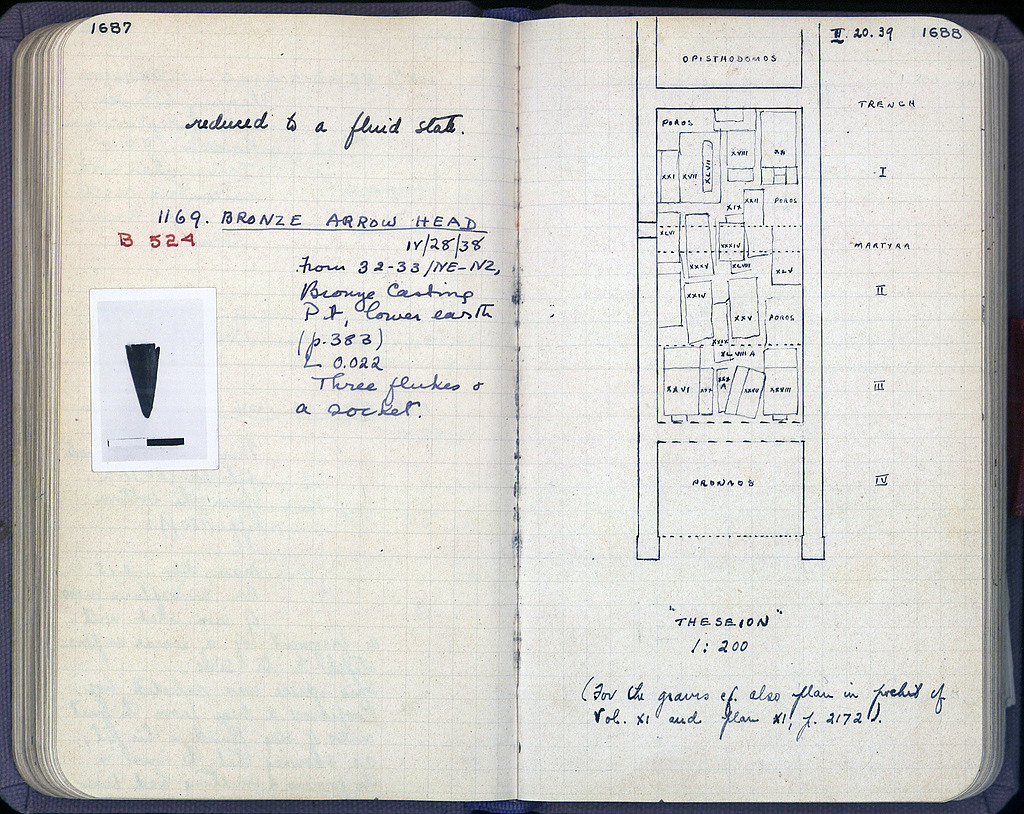 1687
reduced to a fluid state.
1169. BRONZE ARROW HEAD
B 524
IV/28/38
From 32-33/NE-NZ,
Bronze Casting
Pit, lower earth
(p.383)
L 0.022
Three flukes &
a socket.
II. 20. 39 1688
OPISTHODOMOS
TRENCH
POROS
XVIII
XX
I
XXI
XVII
XLVII
XXII
XIX
POROS
XLVI
XXXIV
MARTYRA
XXXV
XLVIII
XLV
II
XXIV
XXV
POROS
XXIX
XLVIII A
XXVI
XXX
XXX A
XXVII
XXVIII
III
PRONAOS
IV
"THESEION"
1:200
(For the graves cf. also plan in pocket of
Vol. XI and plan XI, p. 2172).